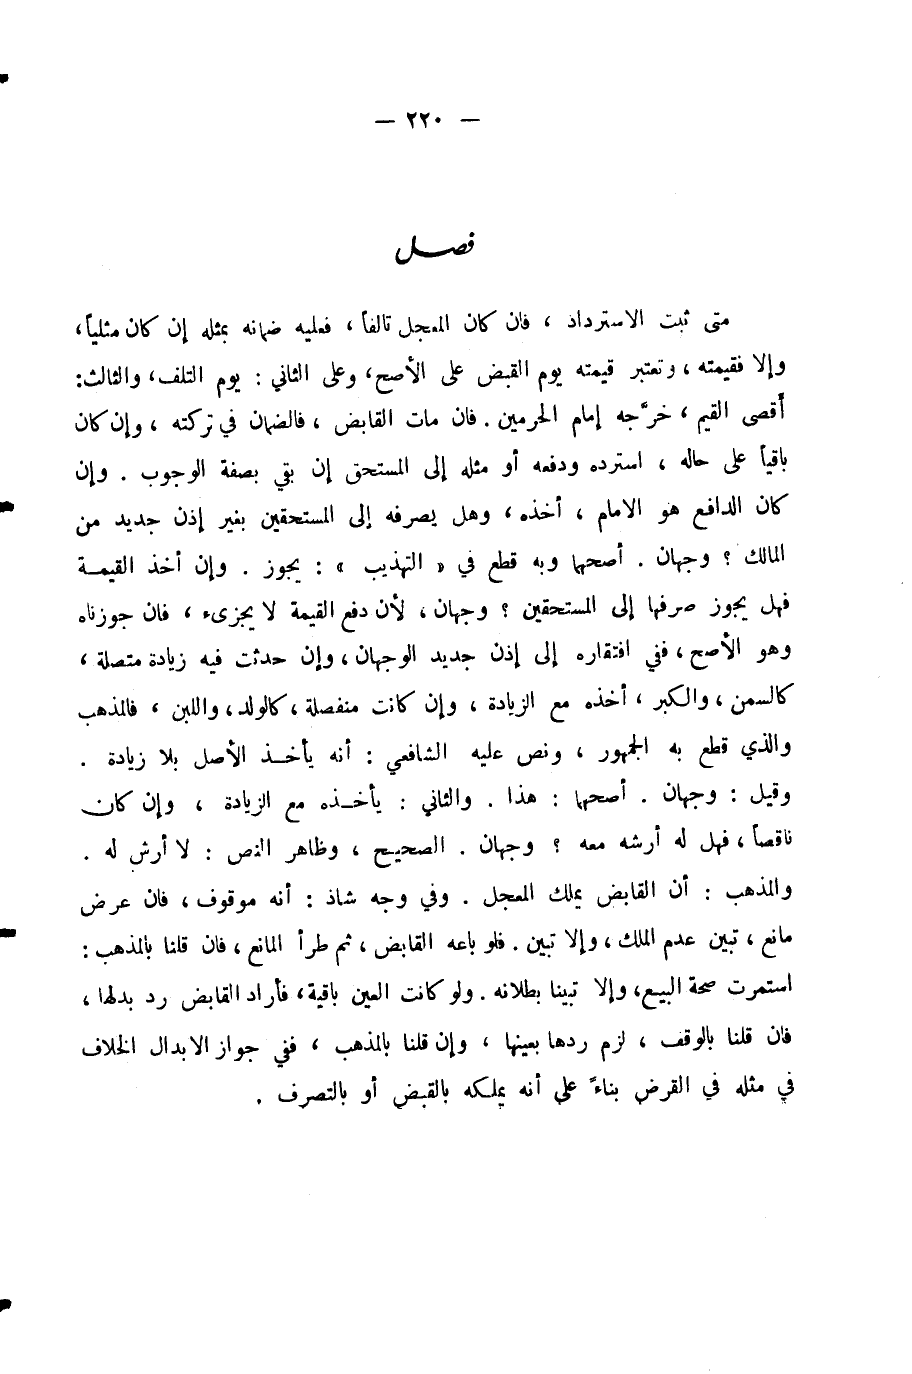 — ٢٢٠ —
فصـــل
متى ثبت الاسترداد ، فان كان المعجل تالفاً ، فعليه ضمانه بمثله إن كان مثلياً ،
وإلا فقيمته ، وتعتبر قيمته يوم القبض على الأصح ، وعلى الثاني : يوم التلف ، والثالث :
أقصى القيم ، خرَّجه إمام الحرمين . فان مات القابض ، فالضمان في تركته ، وإن كان
باقياً على حاله ، استرده ودفعه أو مثله إلى المستحق إن بقي بصفة الوجوب . وإن
كان الدافع هو الامام ، أخذه ، وهل يصرفه إلى المستحقين بغير إذن جديد من
المالك ؟ وجهان . أصحهما وبه قطع في « التهذيب » : يجوز . وإن أخذ القيمــة
فهل يجوز صرفها إلى المستحقين ؟ وجهان ، لأن دفع القيمة لا يجزىء ، فان جوزناه
وهو الأصح ، ففي افتقاره إلى إذن جديد الوجهان ، وإن حدثت فيه زيادة متصلة ،
كالسمن ، والكبر ، أخذه مع الزيادة ، وإن كانت منفصلة ، كالولد ، واللبن ، فالمذهب
والذي قطع به الجمهور ، ونص عليه الشافعي : أنه يأخــذ الأصل بلا زيادة .
وقيل : وجهان . أصحهما : هذا . والثاني : يأخــذه مع الزيادة ، وإن كان
ناقصاً ، فهل له أرشه معه ؟ وجهان . الصحيح ، وظاهر النص : لا أرش له .
والمذهب : أن القابض يملك المعجل . وفي وجه شاذ : أنه موقوف ، فان عرض
مانع ، تبين عدم الملك ، وإلا تبين . فلو باعه القابض ، ثم طرأ المانع ، فان قلنا بالمذهب :
استمرت صحة البيع ، وإلا تبينا بطلانه . ولو كانت العين باقية ، فأراد القابض رد بدلها ،
فان قلنا بالوقف ، لزم ردها بعينها ، وإن قلنا بالمذهب ، ففي جواز الابدال الخلاف
في مثله في القرض بناءً على أنه يملكه بالقبض أو بالتصرف .